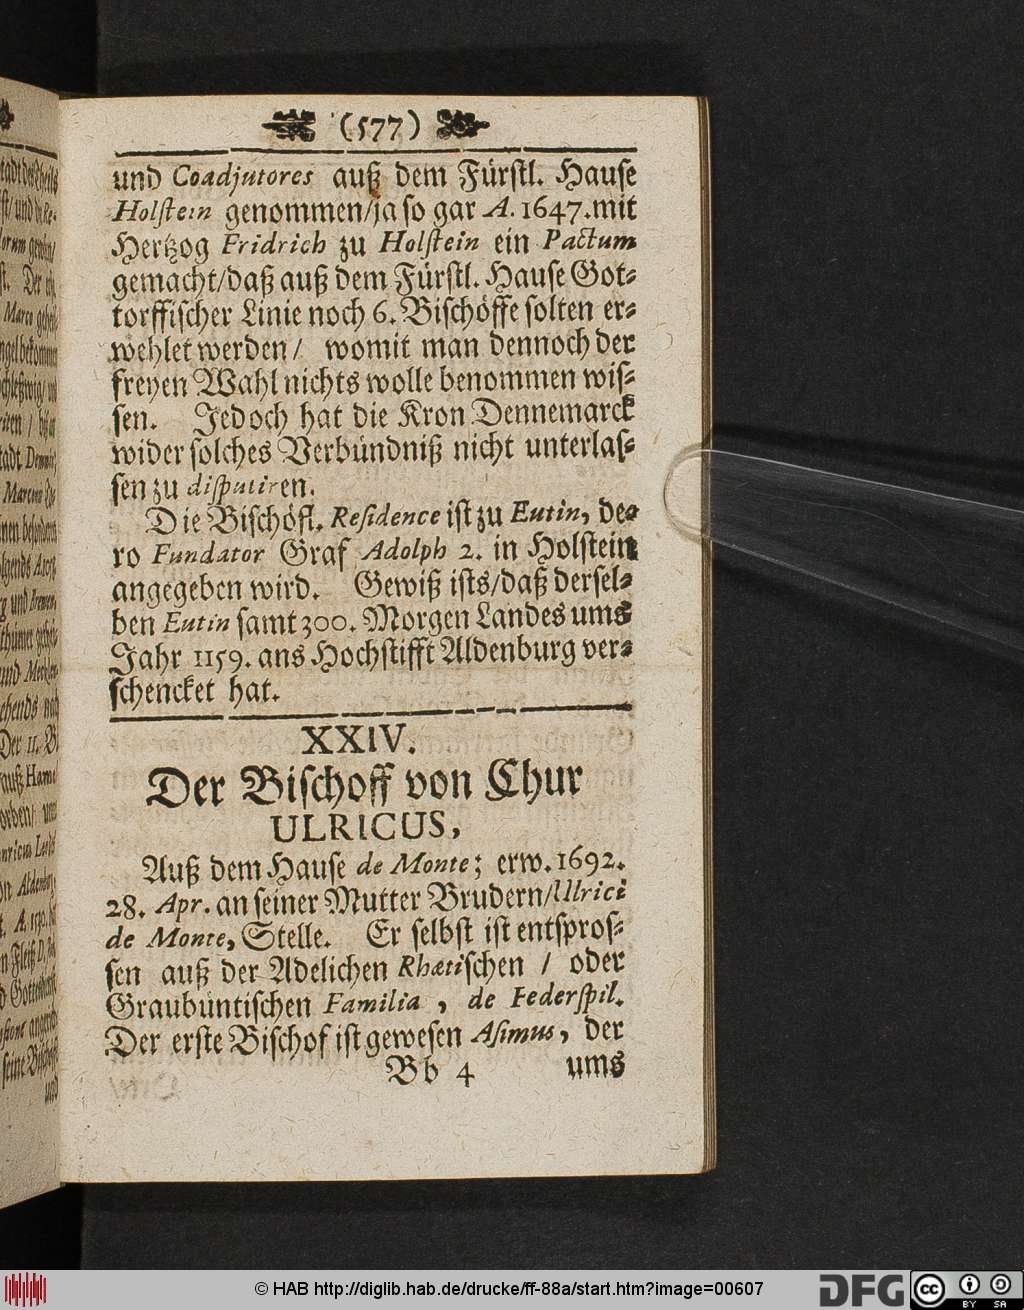 (577)
und Coadjutores auß dem Fürstl. Hause
Holstein genommen/ja so gar A. 1647. mit
Hertzog Fridrich zu Holstein ein Pactum
gemacht/daß auß dem Fürstl. Hause Got-
torffischer Linie noch 6. Bischöffe solten er-
wehlet werden/ womit man dennoch der
freyen Wahl nichts wolle benommen wis-
sen. Jedoch hat die Kron Dennemarck
wider solches Verbündniß nicht unterlas-
sen zu disputiren.
Die Bischöfl. Residence ist zu Eutin, de-
ro Fundator Graf Adolph 2. in Holstein
angegeben wird. Gewiß ists/daß dersel-
ben Eutin samt 300. Morgen Landes ums
Jahr 1159. ans Hochstifft Aldenburg ver-
schencket hat.
XXIV.
Der Bischoff von Chur
ULRICUS,
Auß dem Hause de Monte; erw. 1692.
28. Apr. an seiner Mutter Brudern/Ulrici
de Monte, Stelle. Er selbst ist entspros-
sen auß der Adelichen Rhætischen / oder
Graubüntischen Familia, de Federspil.
Der erste Bischof ist gewesen Asimus, der
Bb 4 ums
© HAB http://diglib.hab.de/drucke/ff-88a/start.htm?image=00607
DFG
cc
BY SA